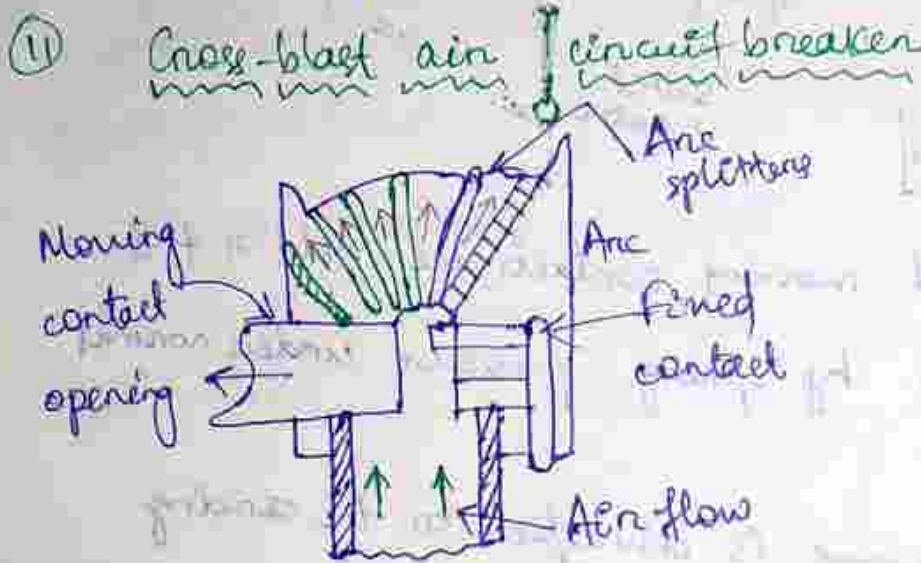 11 Cross-blast air circuit breaker
Arc
splitters
Moving
contact
opening
Arc
fixed
contact
Air flow